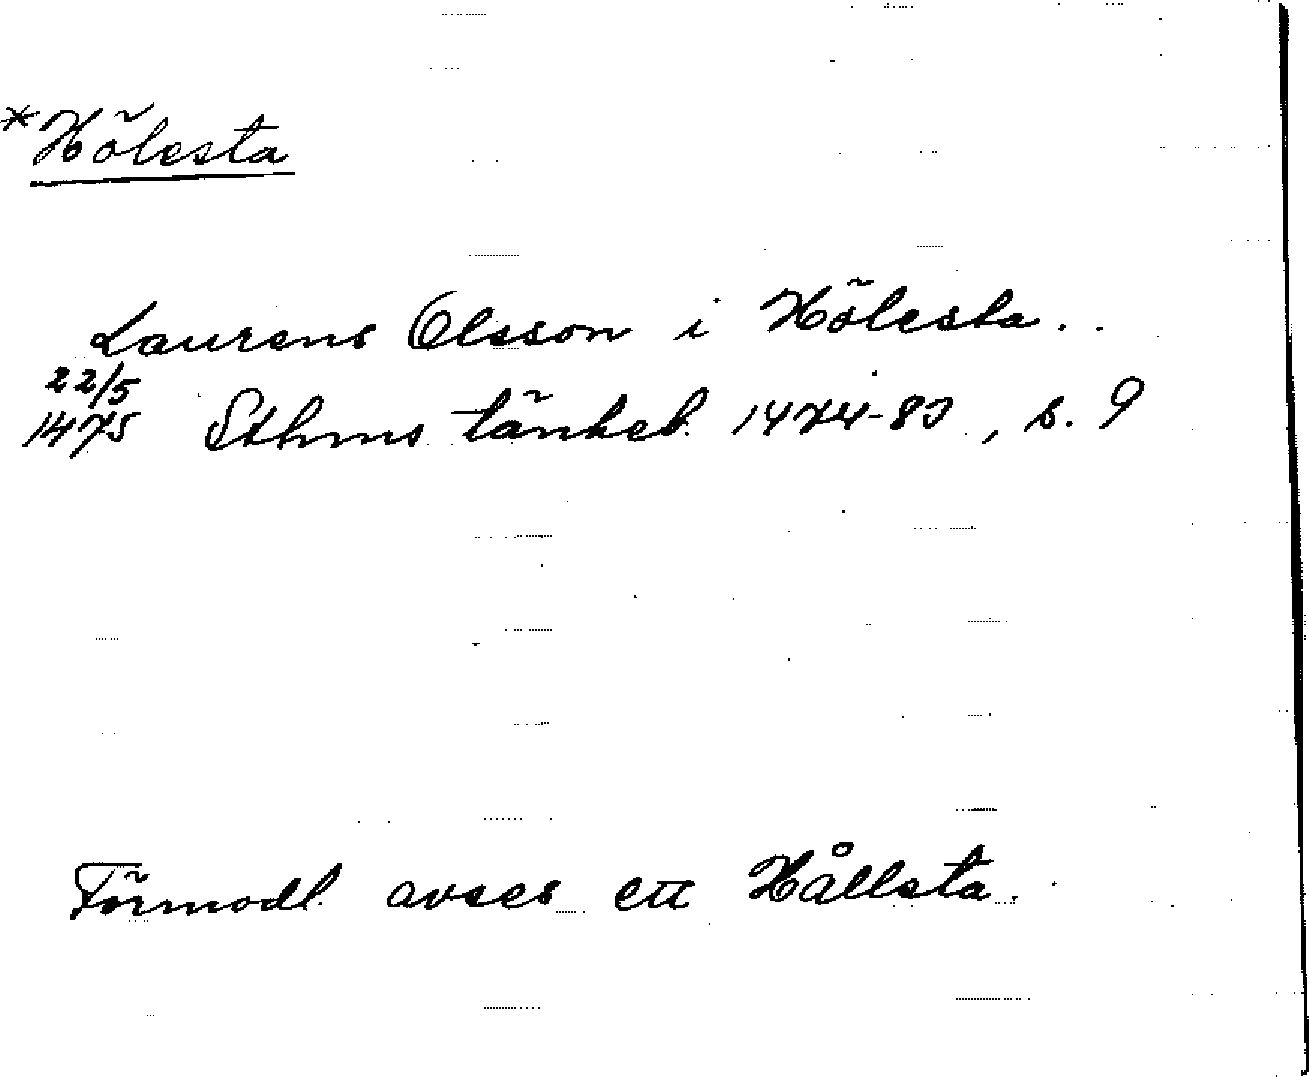 *Hölesta
Laurens Olsson i Hölesta..
22/5
1475 Sthms tänkeb. 1474-83, s. 9
Förmodl. avses ett Hållsta.